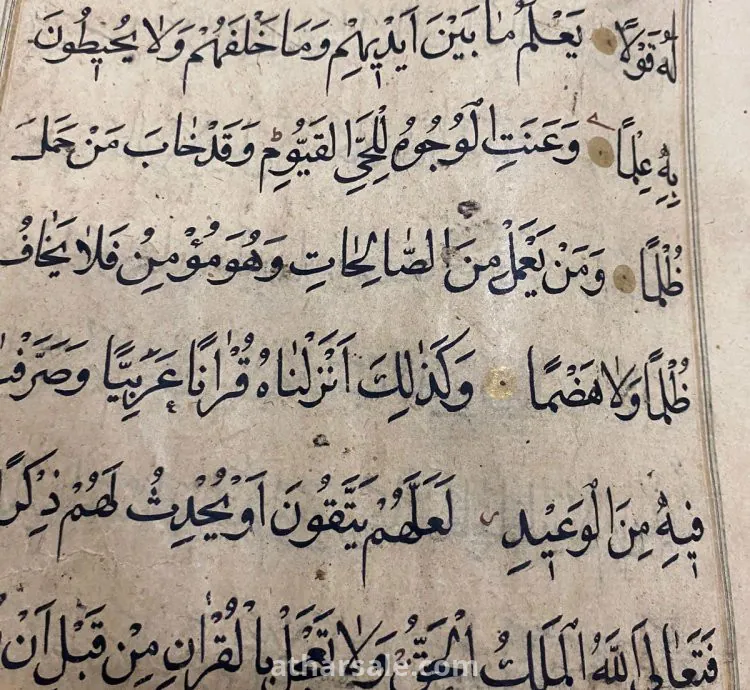 لَهُ قَوْلًا يَعْلَمُ مَا بَيْنَ أَيْدِيهِمْ وَمَا خَلْفَهُمْ وَلَا يُحِيطُونَ
بِهِ عِلْمًا وَعَنَتِ الْوُجُوهُ لِلْحَيِّ الْقَيُّومِ وَقَدْ خَابَ مَنْ حَمَلَ
ظُلْمًا وَمَنْ يَعْمَلْ مِنَ الصَّالِحَاتِ وَهُوَ مُؤْمِنٌ فَلَا يَخَافُ
ظُلْمًا وَلَا هَضْمًا وَكَذَٰلِكَ اَنْزَلْنَاهُ قُرْاٰنًا عَرَبِيًّا وَصَرَّفْنَا
فِيهِ مِنَ الْوَعِيدِ لَعَلَّهُمْ يَتَّقُونَ اَوْ يُحْدِثُ لَهُمْ ذِكْرًا
فَتَعَالَى اللّٰهُ الْمَلِكُ الْحَقُّ وَلَا تَعْجَلْ بِالْقُرْاٰنِ مِنْ قَبْلِ اَنْ
atharsale.com